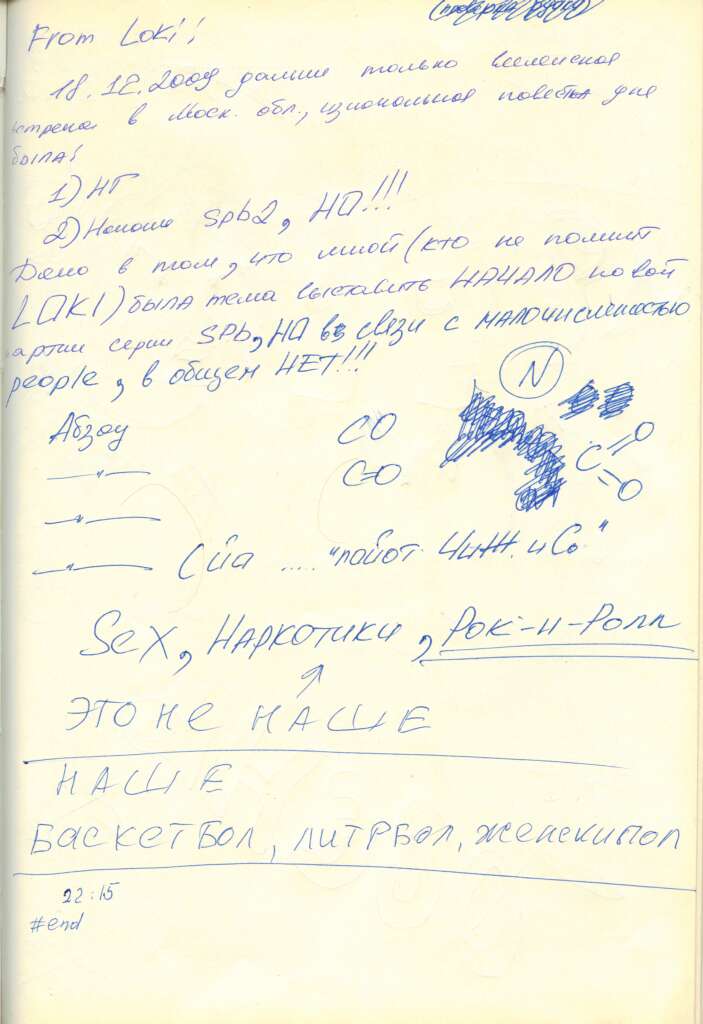 From Loki!
18.12.2009 дальше только вселенская
встреча в Моск. обл., повестка дня
была:
1) НГ
2) Начало Spb2, НО!!!
Дело в том, что мной (кто не помнит
LOKI) была тема выставить НАЧАЛО новой
партии серии SPb, НО в связи с малочисленностью
people, в общем НЕТ!!!
N
Абзац CO
—"— C=O
—"—
C
O
O
—"— (Сйа .... "пойот Чиж и Co"
Sex, Наркотики, Рок-н-Ролл
ЭТО НЕ НАШЕ
НАШЕ
БАСКЕТБОЛ, ЛИТРБОЛ, ЖЕНСКИЙПОЛ
22:15
#end